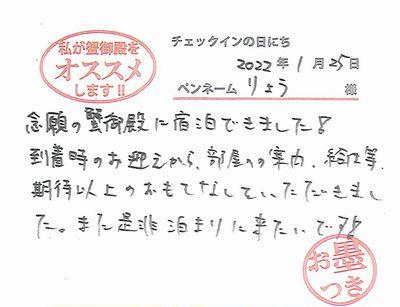 私が蟹御殿を
オススメ
します!!
チェックインの日にち
2022年1月25日
ペンネーム りょう 様
念願の蟹御殿に宿泊できました!
到着時のお迎えから、部屋への案内、給仕等、
期待以上のおもてなしでいただきまし
た。また是非泊まりに来たいです!!
お墨
つき